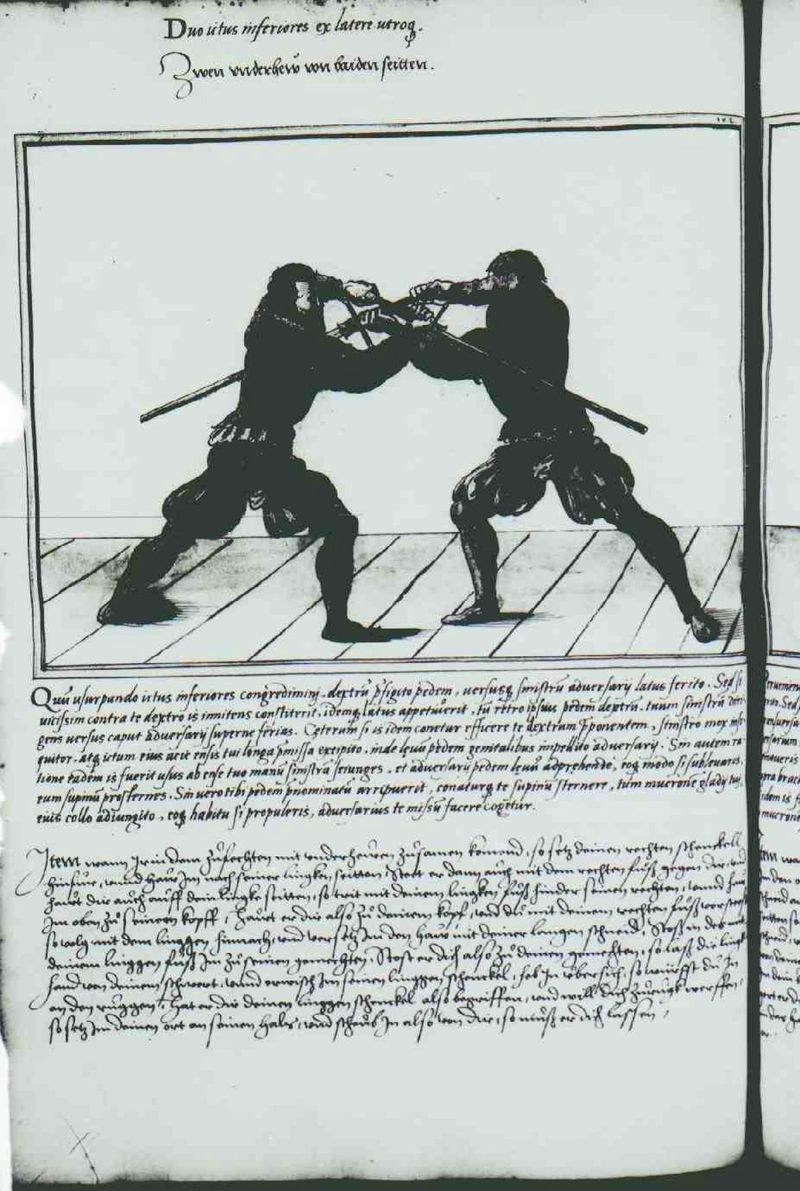 Duo ictus inferiores ex latere utroq.
Zwen underhew von baiden seitten.
Quũ usurpando ictus inferiores congredimini, dextrũ p̃figito pedem, versusq̃ sinistrũ adversarij latus ferito. Sed si
vicissim contra te dextro is innitens constiterit, idemq̃ latus appetiverit, tu retro ipsius pedem dextrũ, tuum sinistrũ
gens versus caput adversarij superne ferias. Ceterum si is idem conetur efficere te dextrum p̃ponentem, sinistro mox
quitor, atq̃ ictum eius acie ensis tui longa p̃missa excipito, inde levũ pedem genitalibus impellito adversarij. Sin autem ra
tione eadem is fuerit usus ab ense tuo manũ sinistrã seiunges, et adversarij pedem levũ adprehende, eoq̃ modo si subleveris,
eum supinũ prosternes. Sin vero tibi pedem p̃nominatũ arripuerit, conaturq̃ te supinũ sternere, tum mucrone gladij tui
eius collo adiungito, eoq̃ habitu si propuleris, adversarius te missũ facere cogetur.
Item wann Ir in dem zůfechten mit underhewen zůsamen komend, so setz deinen rechten schenckell
hinfür, unnd haw Im nach seiner lingken seitten, Stett er dann auch mit dem rechten fůß gegen dir, und
hawt dir auch auff dein lingke seitten, so trit mit deinem lingken fůß hinder seinen rechten, unnd haw
Im oben zů seinem kopff, hawet er dir also zů deinem kopf, und du mit deinem rechten fůß vorsteest
so volg mit dem linggen hinnach, und versetz Im den haw mit deiner langen schneid, Stoß in des mit
deinem linggen fůß Im zů seinen gemechten, Stost er dich also zů deinen gemechten, so laß die lingk
hand von deinem schwert, unnd erwisch Im seinen linggen schenckel, heb In ubersich, so wirfst du In
an den ruggen, hat er dir deinen linggen schenckel also begriffen, und will dich zůrugk werffen,
so setz Im deinen ort an seinen hals, und scheub In also von dir, so můß er dich lassen,